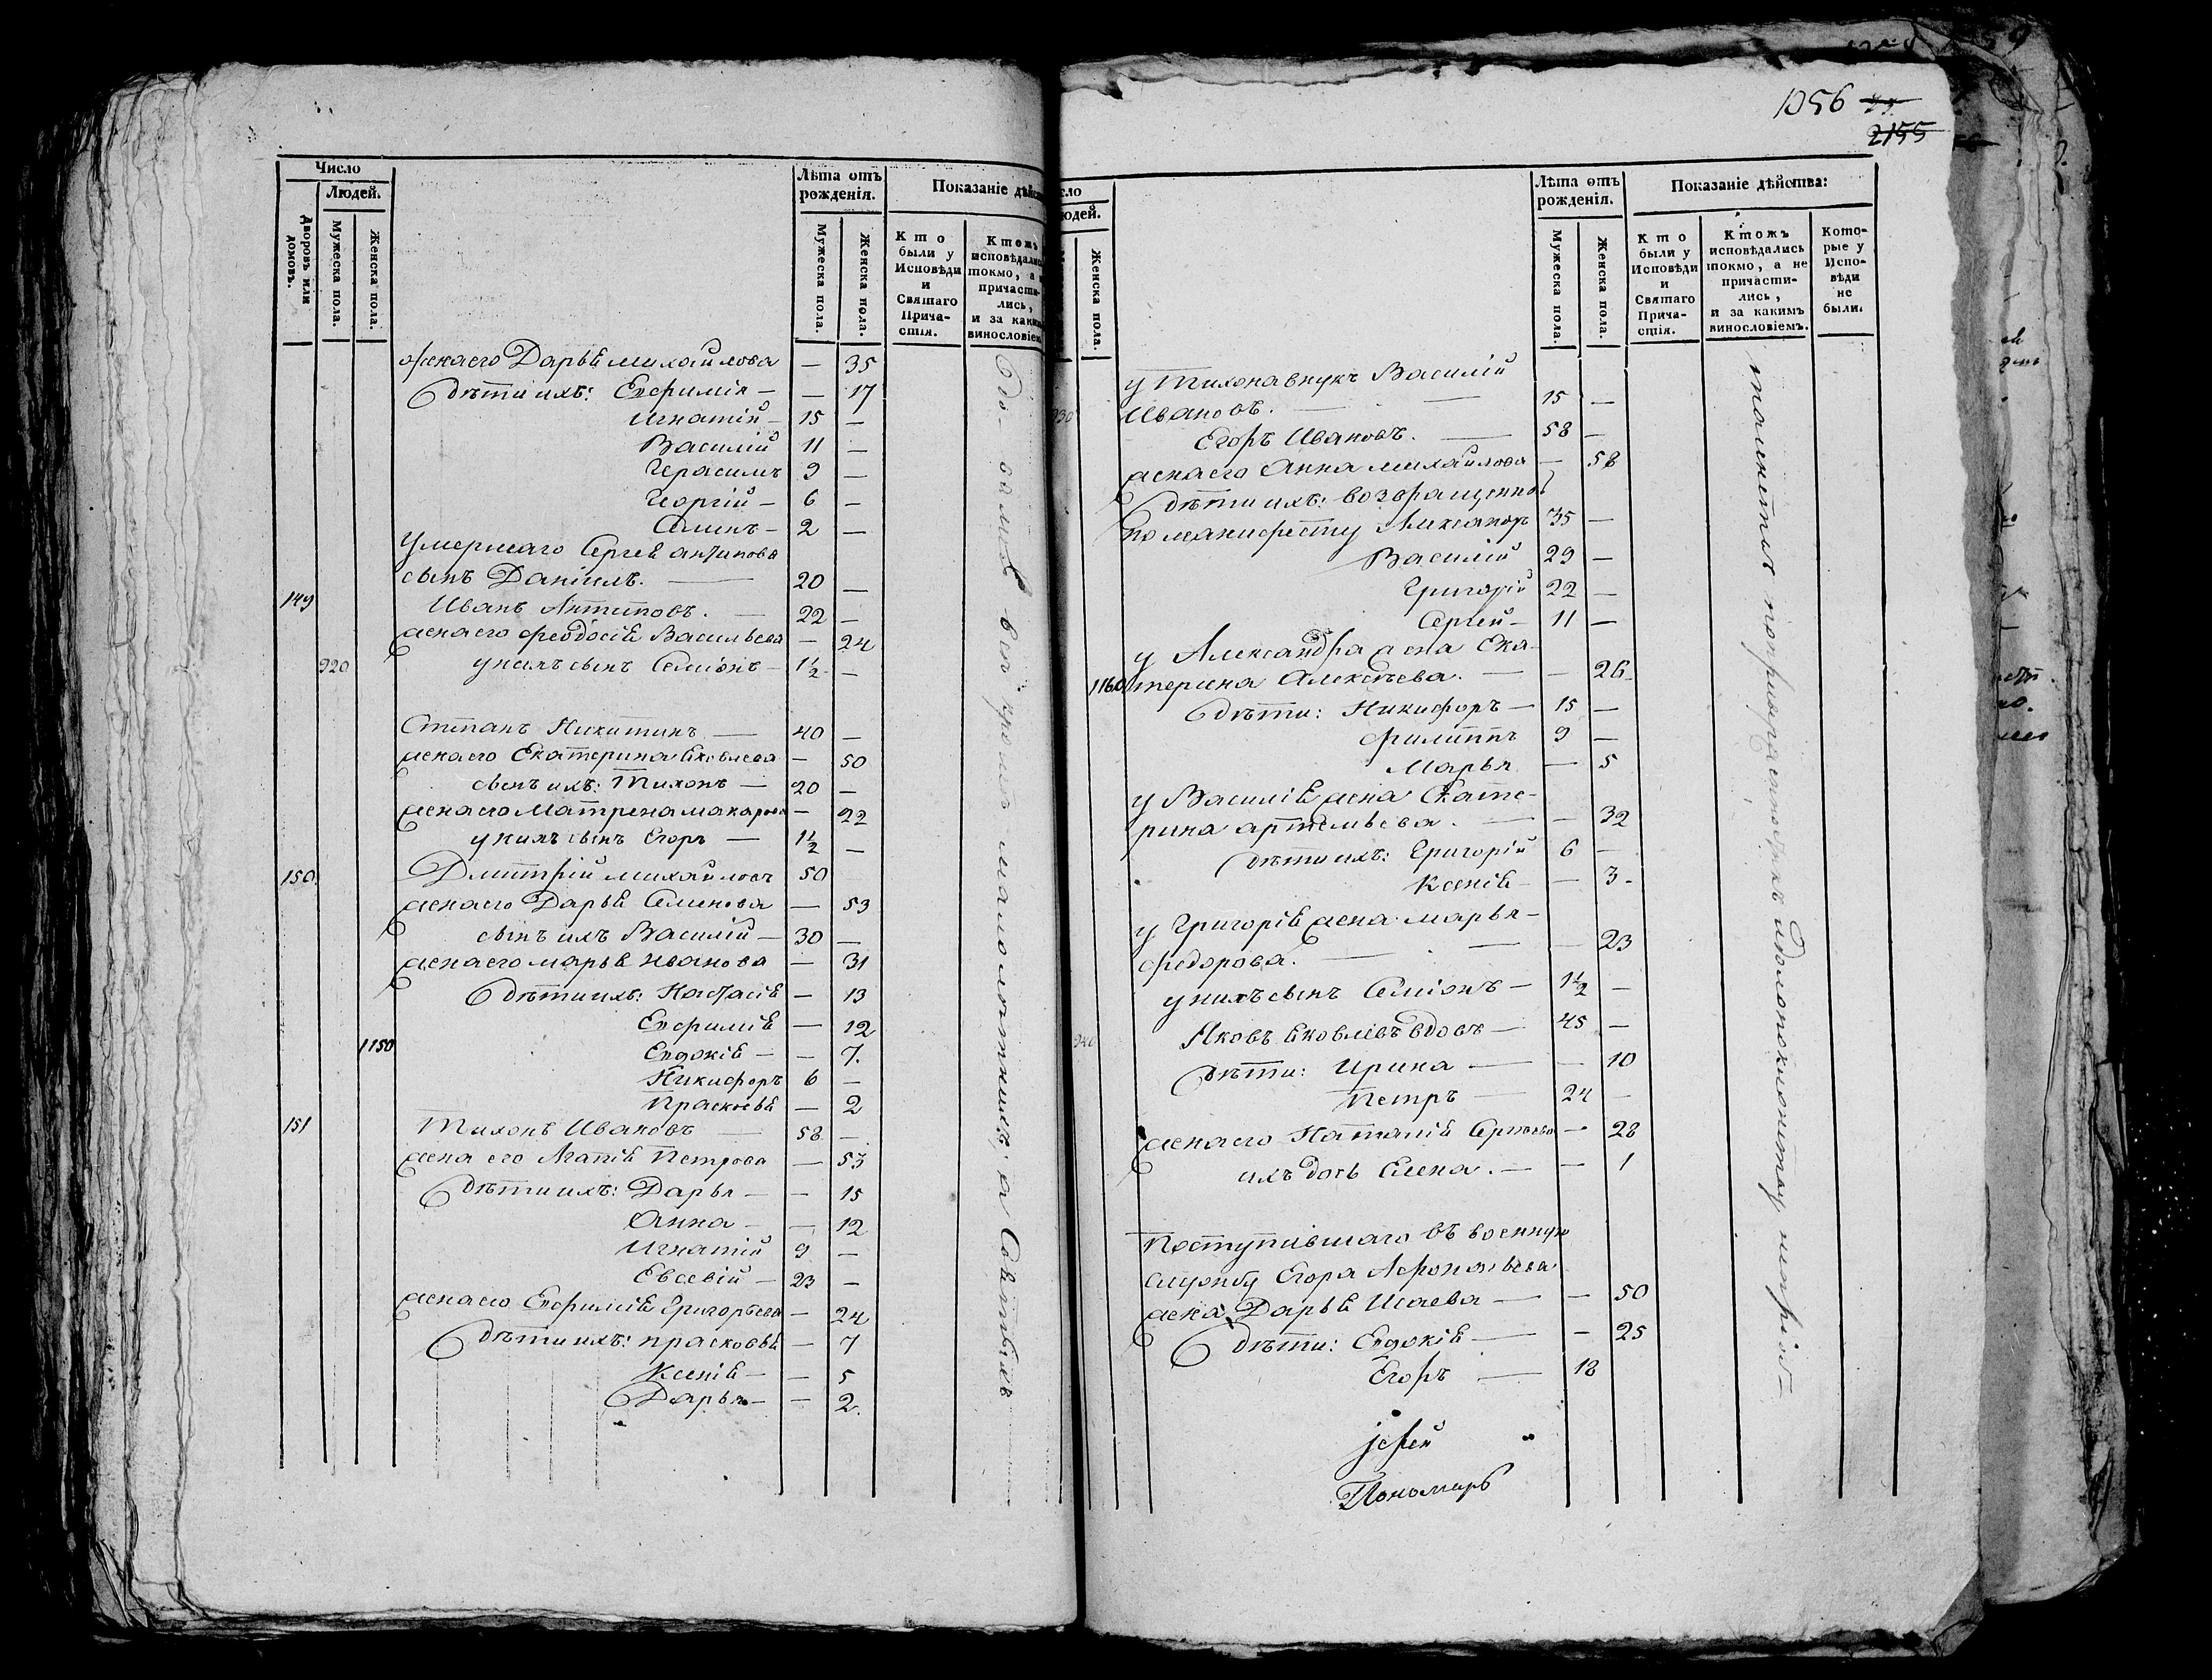 Число
Людей.
Дворовъ или домовъ.
Мужеска пола.
Женска пола.
Лѣта отъ рожденія.
Мужеска пола.
Женска пола.
Показаніе дѣйс
Кто были у Исповѣди и Святаго Прича-стія.
Ктожъ исповѣдались токмо, а не причасти-лись, и за какимъ винословіем
жена его Дарья михайлова — 35
Дѣти ихъ: Евфимія — — 17
Игнатій — 15 —
Василій 11 —
Герасимъ 9 —
Георгій — 6 —
Семенъ — 2 —
Умершаго Сергея антипова
сынъ Даніилъ. — 20 —
149 Иванъ Антиповъ. — 22 —
жена его феодосія Васильева — 24
920 у нихъ сынъ Семіонъ — 1 1/2 —
Степанъ Никитинъ — 40 —
жена его Екатерина Яковлева — 50
сынъ ихъ: Тихонъ — 20 —
жена его Матрена макарова — 22
у нихъ сынъ Егоръ — 1 1/2 —
150. Дмитрій михайловъ 50
жена его Дарья Семенова — 53
сынъ ихъ Василій — 30 —
жена его марья иванова — 31
Дѣти ихъ: Настасія — 13
Евфимія — 12
1150 Евдокія — — 7.
Никифоръ 6 —
Прасковья — 2
151 Тихонъ Ивановъ — 58 —
жена его Агапія Петрова — 53
Дѣти ихъ: Дарья — — 15
Анна — — 12
Игнатій 9 —
Евсевій — 23 —
жена его Евфимія Григорьева — 24
Дѣти ихъ: прасковья — 7
Ксенія — — 5
Дарья — — 2.
вси кромѣ малолѣтнихъ, а
1056 2155
сло
юдей.
Женска пола.
Лѣта отъ рожденія.
Мужеска пола.
Женска пола.
Показаніе дѣйства:
Кто были у Исповѣди и Святаго Прича-стія.
Ктожъ исповѣдались токмо, а не причасти-лись, и за какимъ винословіемъ.
Кото-рые у Испо-вѣди не были.
у Тихона внукъ Василій
930 Ивановъ. — — 15 —
Егоръ Ивановъ. — 58 —
жена его Анна михайлова — 58
Дѣти ихъ: возвращенной
по манифесту Александръ 35 —
Василій 29 —
Григорій 22 —
Сергей — 11 —
у Александра жена Ека-
1160 терина Алексѣева. — — 26 —
Дѣти: Никифоръ — 15 —
филиппъ 9 —
Марья — 5
у Василія жена Екате-
рина артемьева. — — 32
Дѣти ихъ: Григорій 6 —
Ксенія — — 3 —
у Григорія жена марья —
федорова. — — — 23
у нихъ сынъ Семіонъ — 1 1/2 —
940 Яковъ Яковлевъ вдовъ — 45 —
Дѣти: Ирина — — 10
Петръ — 24 —
жена его Наталія Сергѣева — 28
ихъ дочь Елена. — — 1
Поступившаго въ военную
службу Егора Афонасьева
жена Дарья Исаева — — 50
Дѣти: Евдокія — — 25
Егоръ — 18
іерей
Пономарь